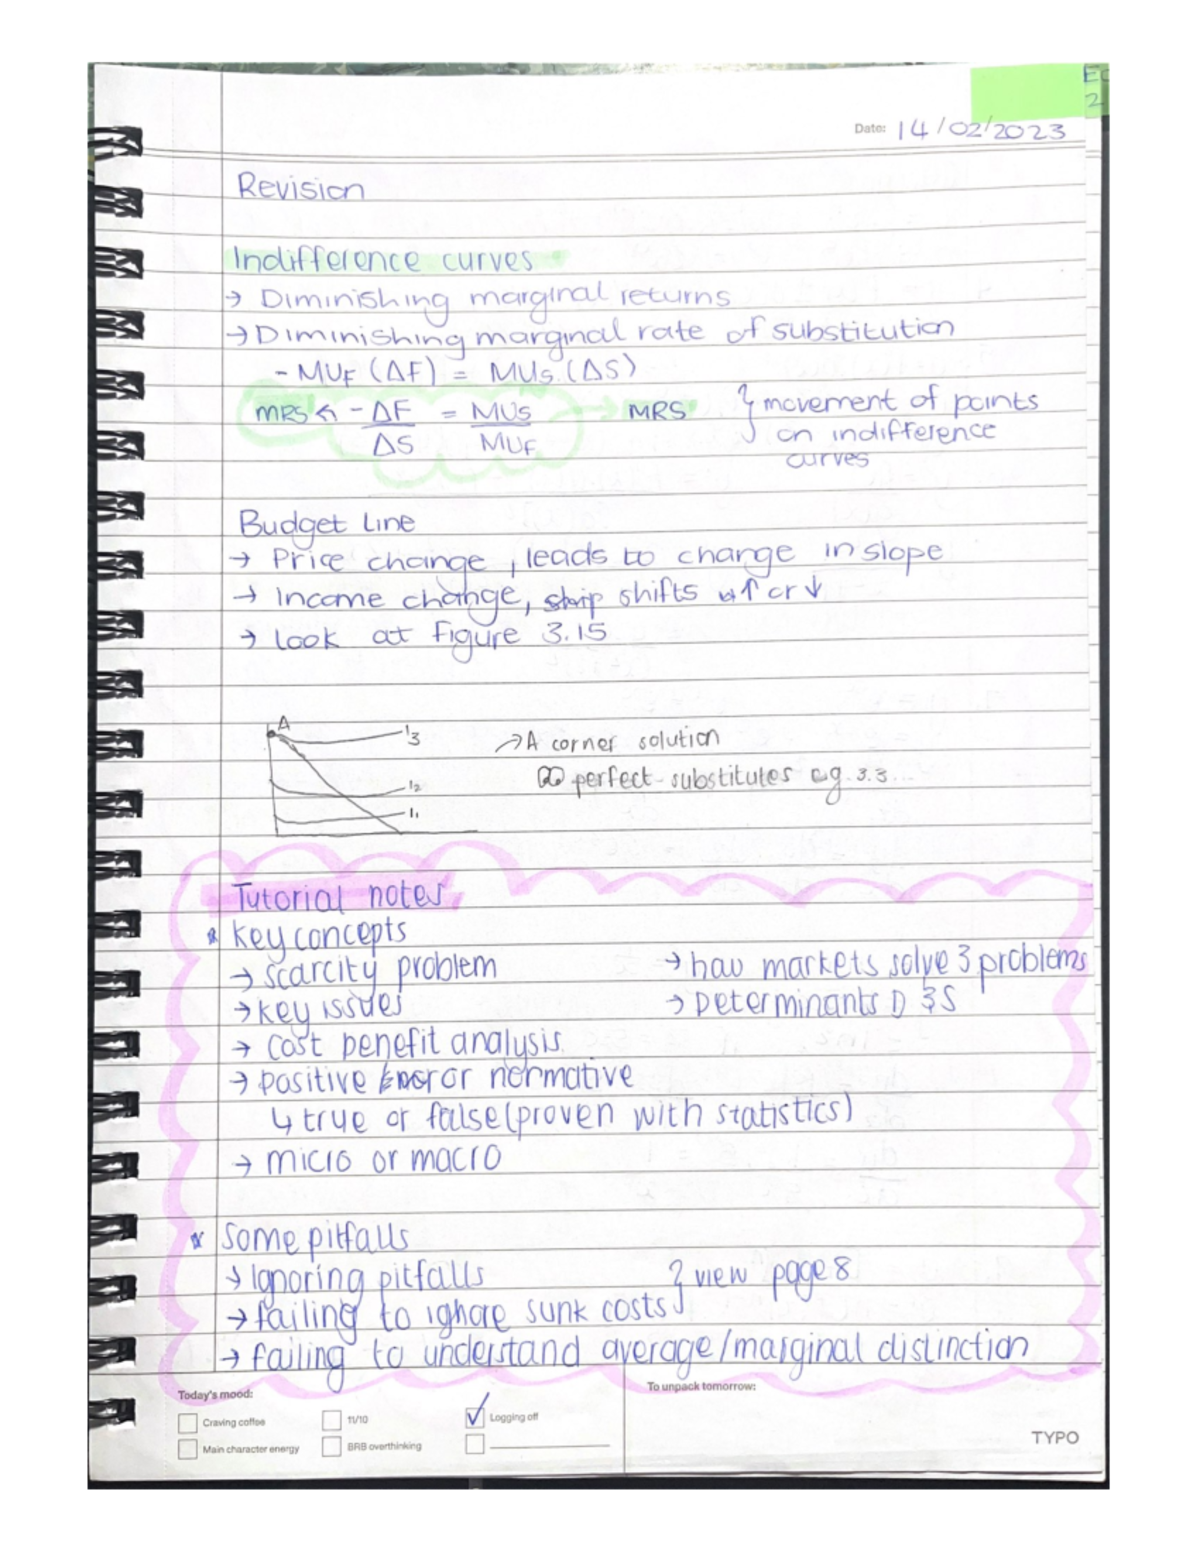 EC
2
Date: 14/02/2023
Revision
Indifference curves
→ Diminishing marginal returns
→ Diminishing marginal rate of substitution
- MUF (ΔF) = MUs (ΔS)
MRS ↰ - ΔF/ΔS = MUs/MUF → MRS } movement of points
on indifference
curves
Budget Line
→ Price change, leads to change in slope
→ Income change, shifts ↑ or ↓
→ look at figure 3.15
A
I3
I2
I1
→ A corner solution
perfect substitutes e.g. 3.3...
Tutorial notes
* key concepts
→ scarcity problem → how markets solve 3 problems
→ key issues → Determinants D & S
→ cost benefit analysis.
→ positive or normative
↳ true or false (proven with statistics)
→ micro or macro
* Some pitfalls
→ Ignoring pitfalls } view page 8
→ failing to ignore sunk costs
→ failing to understand average/marginal distinction
Today's mood:
To unpack tomorrow:
Craving coffee 11/10 ✓ Logging off
Main character energy BRB overthinking
TYPO